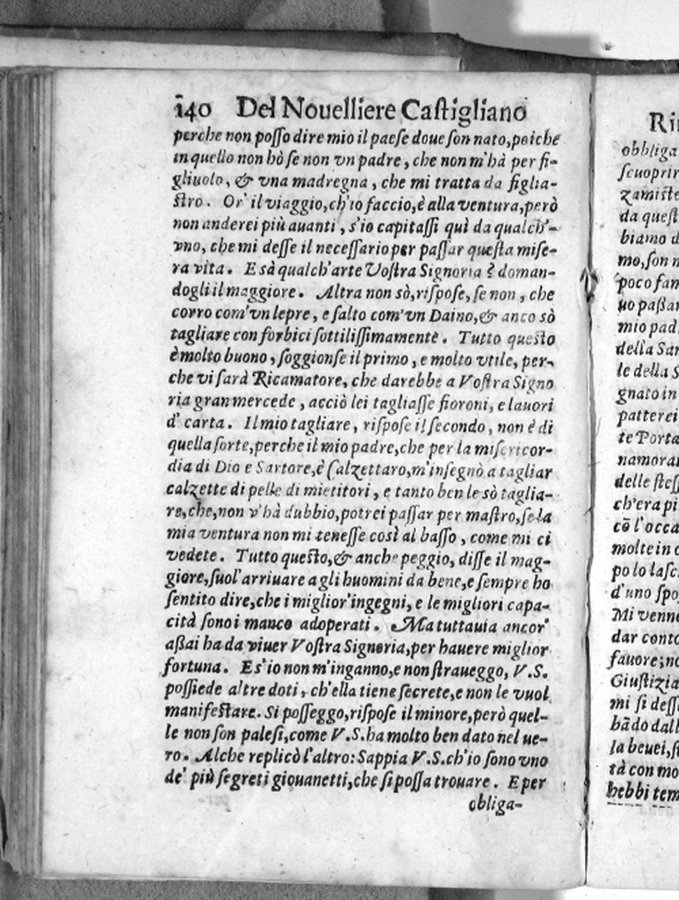 140 Del Nouelliere Castigliano
perche non posso dire mio il paese doue son nato, poiche
in quello non hò se non vn padre, che non m'hà per fi-
gliuolo, & vna madregna, che mi tratta da figlia-
stro. Or' il viaggio, ch'io faccio, è alla ventura, però
non anderei più auanti, s'io capitassi quì da qualch'-
vno, che mi desse il necessario per passar questa mise-
ra vita. E sà qualch'arte Vostra Signoria? doman-
dogli il maggiore. Altra non sò, rispose, se non, che
corro com'vn lepre, e salto com'vn Daino, & anco sò
tagliare con forbici sottilissimamente. Tutto questo
è molto buono, soggionse il primo, e molto vtile, per-
che vi sarà Ricamatore, che darebbe a Vostra Signo
ria gran mercede, acciò lei tagliasse fioroni, e lauori
d' carta. Il mio tagliare, rispose il secondo, non è di
quella sorte, perche il mio padre, che per la misericor-
dia di Dio e Sartore, è Calzettaro, m'insegnò a tagliar
calzette di pelle di mietitori, e tanto ben le sò taglia-
re, che, non v'hà dubbio, potrei passar per mastro, se la
mia ventura non mi tenesse così al basso, come mi ci
vedete. Tutto questo, & anche peggio, disse il mag-
giore, suol' arriuare a gli huomini da bene, e sempre ho
sentito dire, che i miglior' ingegni, e le migliori capa-
cità sono i manco adoperati. Ma tuttauia ancor'
assai ha da viuer Vostra Signoria, per hauere miglior
fortuna. E s'io non m'inganno, e non straueggo, V.S.
possiede altre doti, ch'ella tiene secrete, e non le vuol
manifestare. Si posseggo, rispose il minore, però quel-
le non son palesi, come V.S. ha molto ben dato nel ue-
ro. Alche replicò l'altro: Sappia V.S. ch'io sono vno
de' più segreti giouanetti, che si possa trouare. E per
obliga-
Ri
obbliga
scuoprir
zamiste
da quest
biamo d
mo, son n
poco fam
uo passar
mio pad
della Sar
le della S
gnato in
patterei
te Porta
namorar
delle stes
ch'era pi
cō l'occa
molte in c
po lo lasc
d'uno spo
Mi venne
dar conto
fauore; no
Giustizia
mi si dess
bādo dall
la beuei, s
tà con mo
hebbi tem